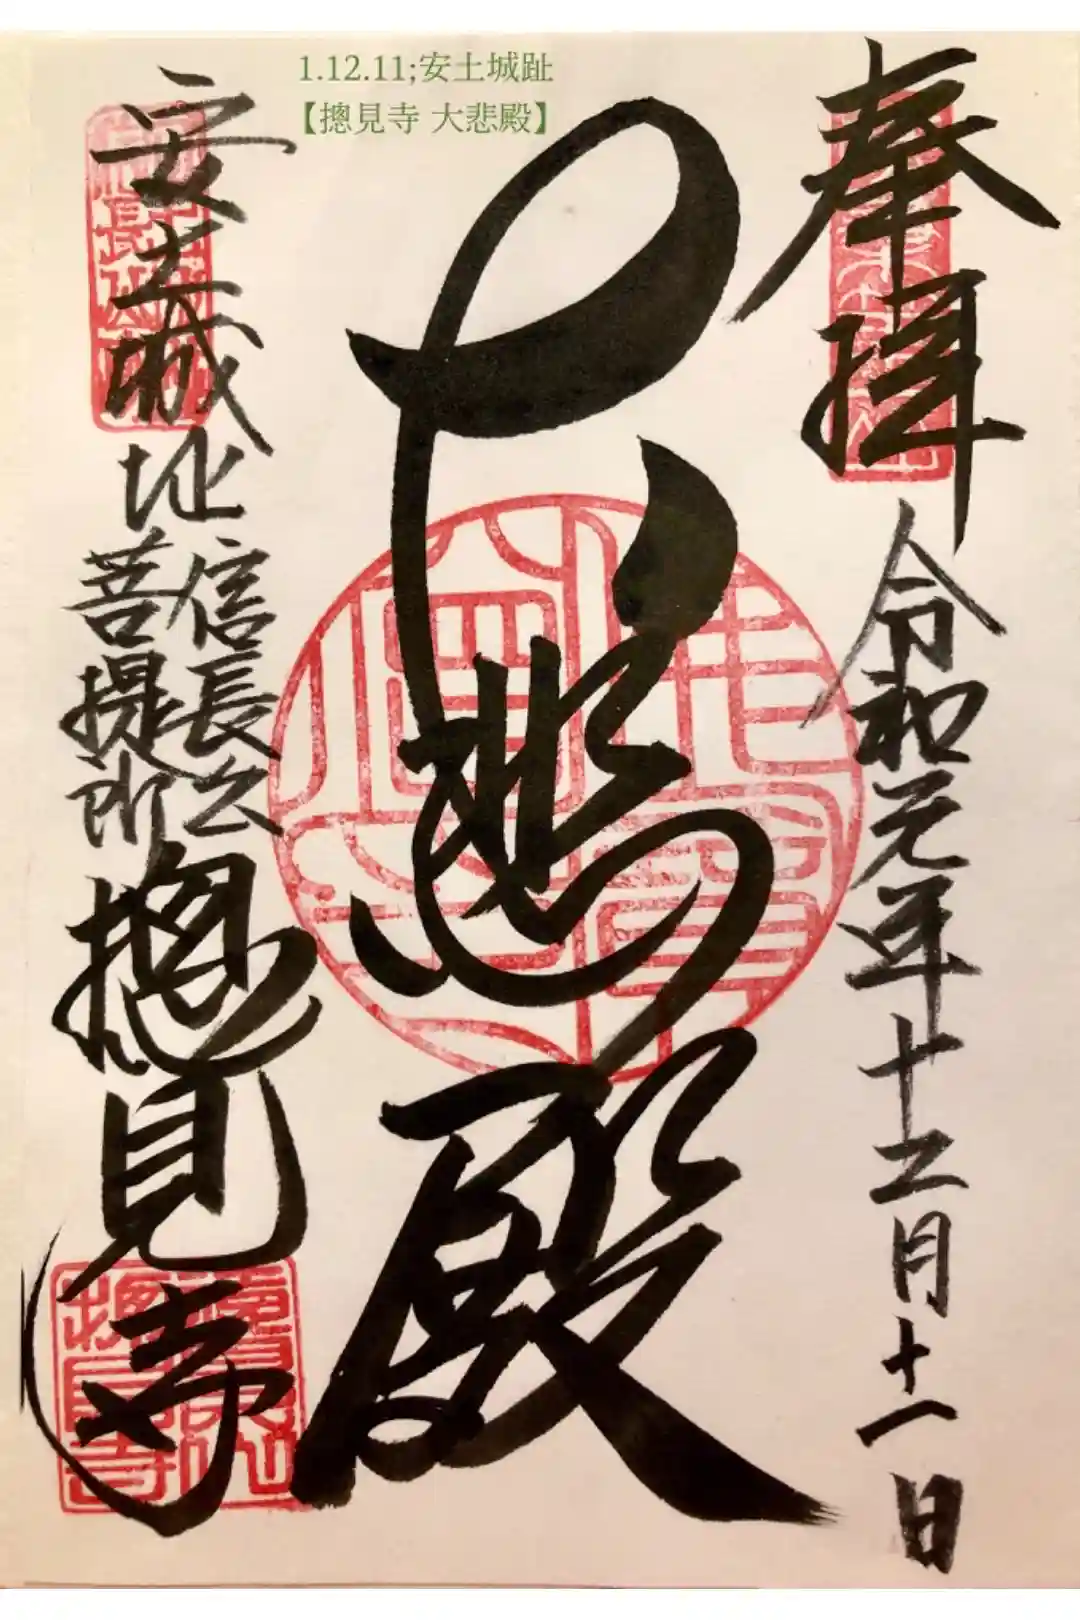 1.12.11;安土城趾
【摠見寺 大悲殿】
奉拝
令和元年十二月十一日
大悲殿
安土城址
信長公
菩提所
摠見寺